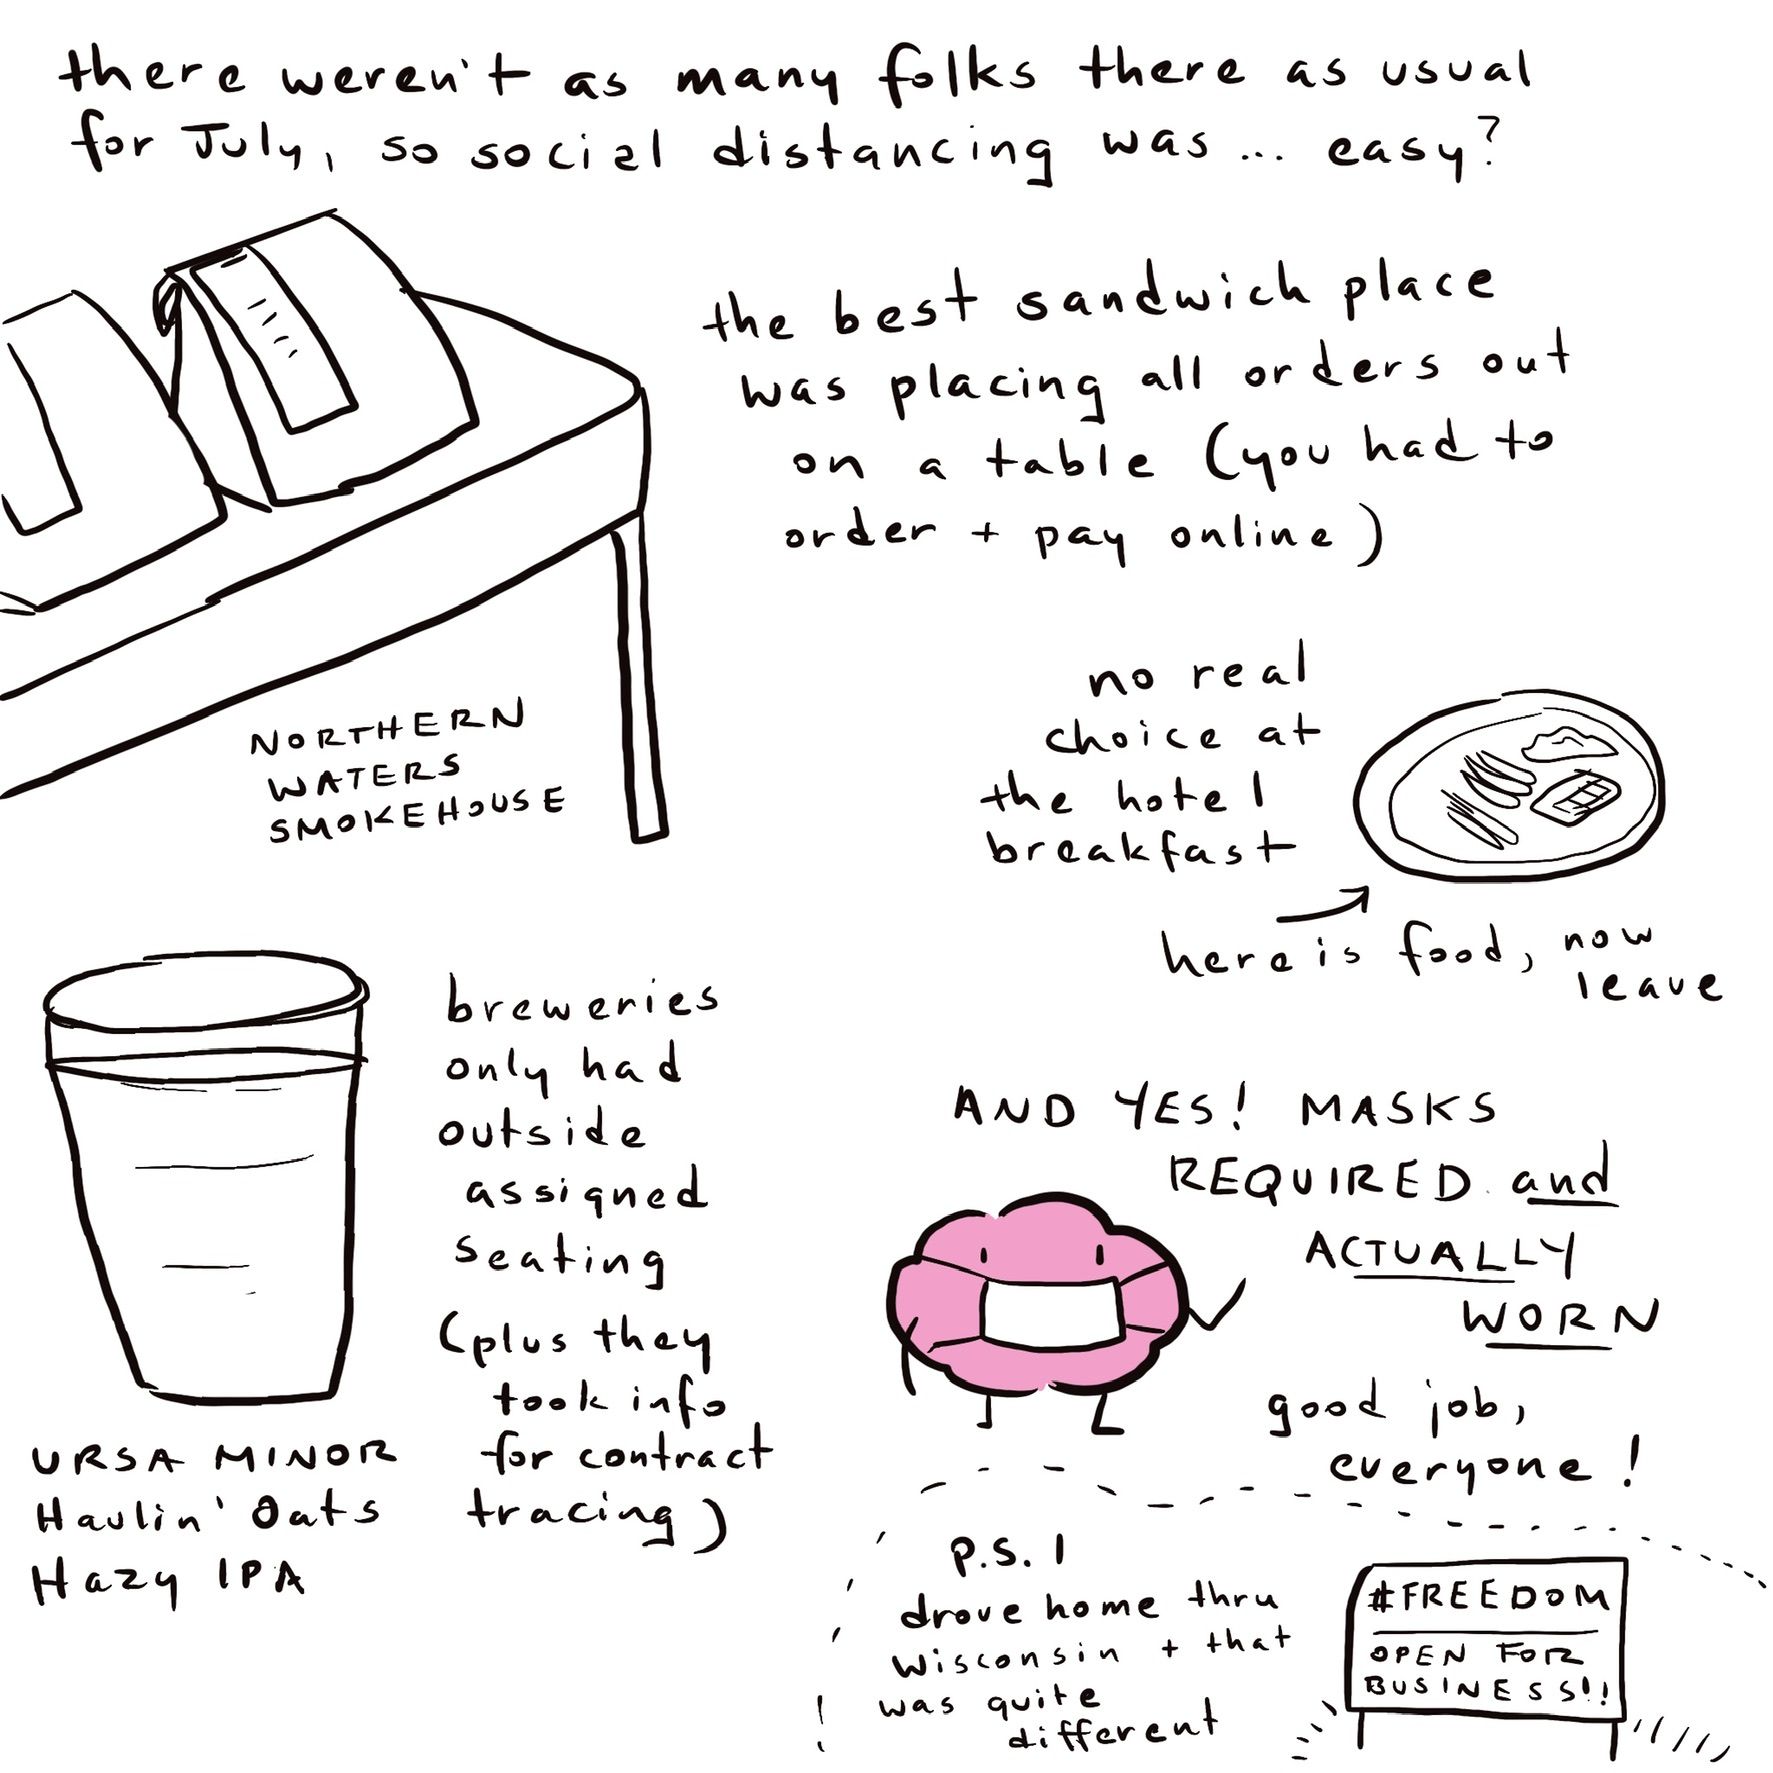 there weren't as many folks there as usual
for July, so social distancing was... easy?
the best sandwich place
was placing all orders out
on a table (you had to
order + pay online)
NORTHERN
WATERS
SMOKEHOUSE
no real
choice at
the hotel
breakfast
here is food, now
leave
breweries
only had
outside
assigned
seating
(plus they
took info
for contract
tracing)
URSA MINOR
Haulin' Oats
Hazy IPA
AND YES! MASKS
REQUIRED and
ACTUALLY
WORN
good job,
everyone!
P.S. I
drove home thru
Wisconsin + that
was quite
different
#FREEDOM
OPEN FOR
BUSINESS!!